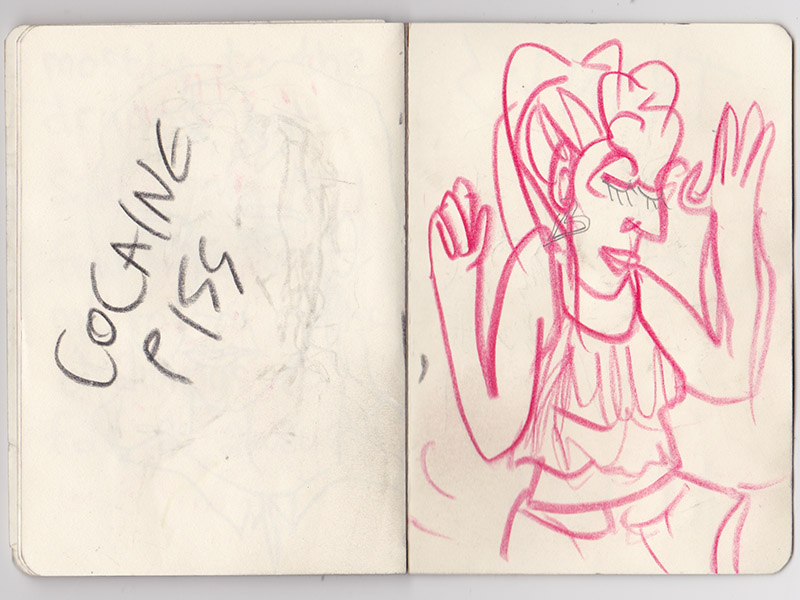 COCAINE
PISS